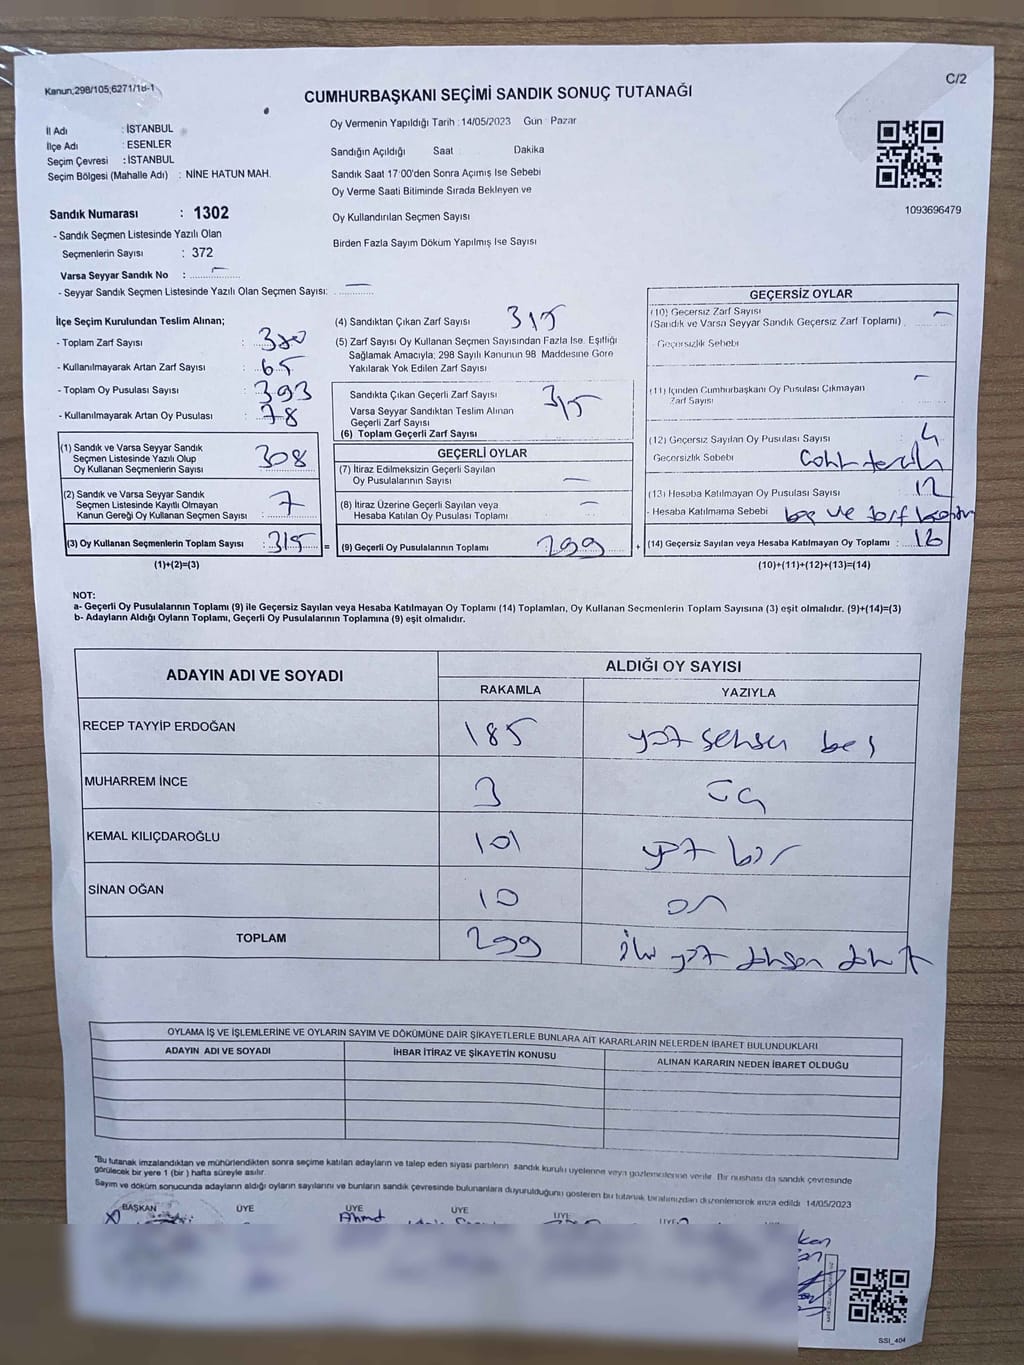 Kanun;298/105;6271/18-1
C/2
CUMHURBAŞKANI SEÇİMİ SANDIK SONUÇ TUTANAĞI
İl Adı : İSTANBUL
İlçe Adı : ESENLER
Seçim Çevresi : İSTANBUL
Seçim Bölgesi (Mahalle Adı) : NİNE HATUN MAH.
Oy Vermenin Yapıldığı Tarih : 14/05/2023 Gün : Pazar
Sandığın Açıldığı Saat Dakika
Sandık Saat 17:00'den Sonra Açımış Ise Sebebi
Oy Verme Saati Bitiminde Sırada Bekleyen ve
Oy Kullandırılan Seçmen Sayısı
Birden Fazla Sayım Döküm Yapılmış Ise Sayısı
1093696479
Sandık Numarası : 1302
- Sandık Seçmen Listesinde Yazılı Olan
Seçmenlerin Sayısı : 372
Varsa Seyyar Sandık No : —
- Seyyar Sandık Seçmen Listesinde Yazılı Olan Seçmen Sayısı: —
İlçe Seçim Kurulundan Teslim Alınan;
- Toplam Zarf Sayısı : 380
- Kullanılmayarak Artan Zarf Sayısı : 65
- Toplam Oy Pusulası Sayısı : 393
- Kullanılmayarak Artan Oy Pusulası : 78
(1) Sandık ve Varsa Seyyar Sandık
Seçmen Listesinde Yazılı Olup
Oy Kullanan Seçmenlerin Sayısı 308
(2) Sandık ve Varsa Seyyar Sandık
Seçmen Listesinde Kayıtlı Olmayan
Kanun Gereği Oy Kullanan Seçmen Sayısı : 7
(3) Oy Kullanan Seçmenlerin Toplam Sayısı : 315
(1)+(2)=(3)
(4) Sandıktan Çıkan Zarf Sayısı 315
(5) Zarf Sayısı Oy Kullanan Seçmen Sayısından Fazla Ise, Eşitliği
Sağlamak Amacıyla; 298 Sayılı Kanunun 98 Maddesine Göre
Yakılarak Yok Edilen Zarf Sayısı
Sandıkta Çıkan Geçerli Zarf Sayısı 315
Varsa Seyyar Sandıktan Teslim Alınan
Geçerli Zarf Sayısı
(6) Toplam Geçerli Zarf Sayısı
GEÇERLİ OYLAR
(7) İtiraz Edilmeksizin Geçerli Sayılan
Oy Pusulalarının Sayısı —
(8) İtiraz Üzerine Geçerli Sayılan veya
Hesaba Katılan Oy Pusulası Toplamı —
= (9) Geçerli Oy Pusulalarının Toplamı 299 +
GEÇERSİZ OYLAR
(10) Geçersiz Zarf Sayısı
(Sandık ve Varsa Seyyar Sandık Geçersiz Zarf Toplamı) —
- Geçersizlik Sebebi
(11) İçinden Cumhurbaşkanı Oy Pusulası Çıkmayan
Zarf Sayısı —
(12) Geçersiz Sayılan Oy Pusulası Sayısı 4
Geçersizlik Sebebi
(13) Hesaba Katılmayan Oy Pusulası Sayısı 12
- Hesaba Katılmama Sebebi boş ve zarf
(14) Geçersiz Sayılan veya Hesaba Katılmayan Oy Toplamı : 16
(10)+(11)+(12)+(13)=(14)
NOT:
a- Geçerli Oy Pusulalarının Toplamı (9) ile Geçersiz Sayılan veya Hesaba Katılmayan Oy Toplamı (14) Toplamları, Oy Kullanan Seçmenlerin Toplam Sayısına (3) eşit olmalıdır. (9)+(14)=(3)
b- Adayların Aldığı Oyların Toplamı, Geçerli Oy Pusulalarının Toplamına (9) eşit olmalıdır.
ADAYIN ADI VE SOYADI
ALDIĞI OY SAYISI
RAKAMLA YAZIYLA
RECEP TAYYİP ERDOĞAN 185 yüz seksen beş
MUHARREM İNCE 3 üç
KEMAL KILIÇDAROĞLU 101 yüz bir
SİNAN OĞAN 10 on
TOPLAM 299 iki yüz doksan dokuz
OYLAMA İŞ VE İŞLEMLERİNE VE OYLARIN SAYIM VE DÖKÜMÜNE DAİR ŞİKAYETLERLE BUNLARA AİT KARARLARIN NELERDEN İBARET BULUNDUKLARI
ADAYIN ADI VE SOYADI İHBAR İTİRAZ VE ŞİKAYETİN KONUSU ALINAN KARARIN NEDEN İBARET OLDUĞU
*Bu tutanak imzalandıktan ve mühürlendikten sonra seçime katılan adayların ve talep eden siyasi partilerin sandık kurulu üyelerine veya gözlemcilerine verilir. Bir nushası da sandık çevresinde
görülecek bir yere 1 (bir ) hafta süreyle asılır.
Sayım ve döküm sonucunda adayların aldığı oyların sayılarını ve bunların sandık çevresinde bulunanlara duyurulduğunu gösteren bu tutanak tarafımızdan düzenlenerek imza edildi 14/05/2023
BAŞKAN ÜYE ÜYE ÜYE ÜYE ÜYE
Ahmet
SSI_404